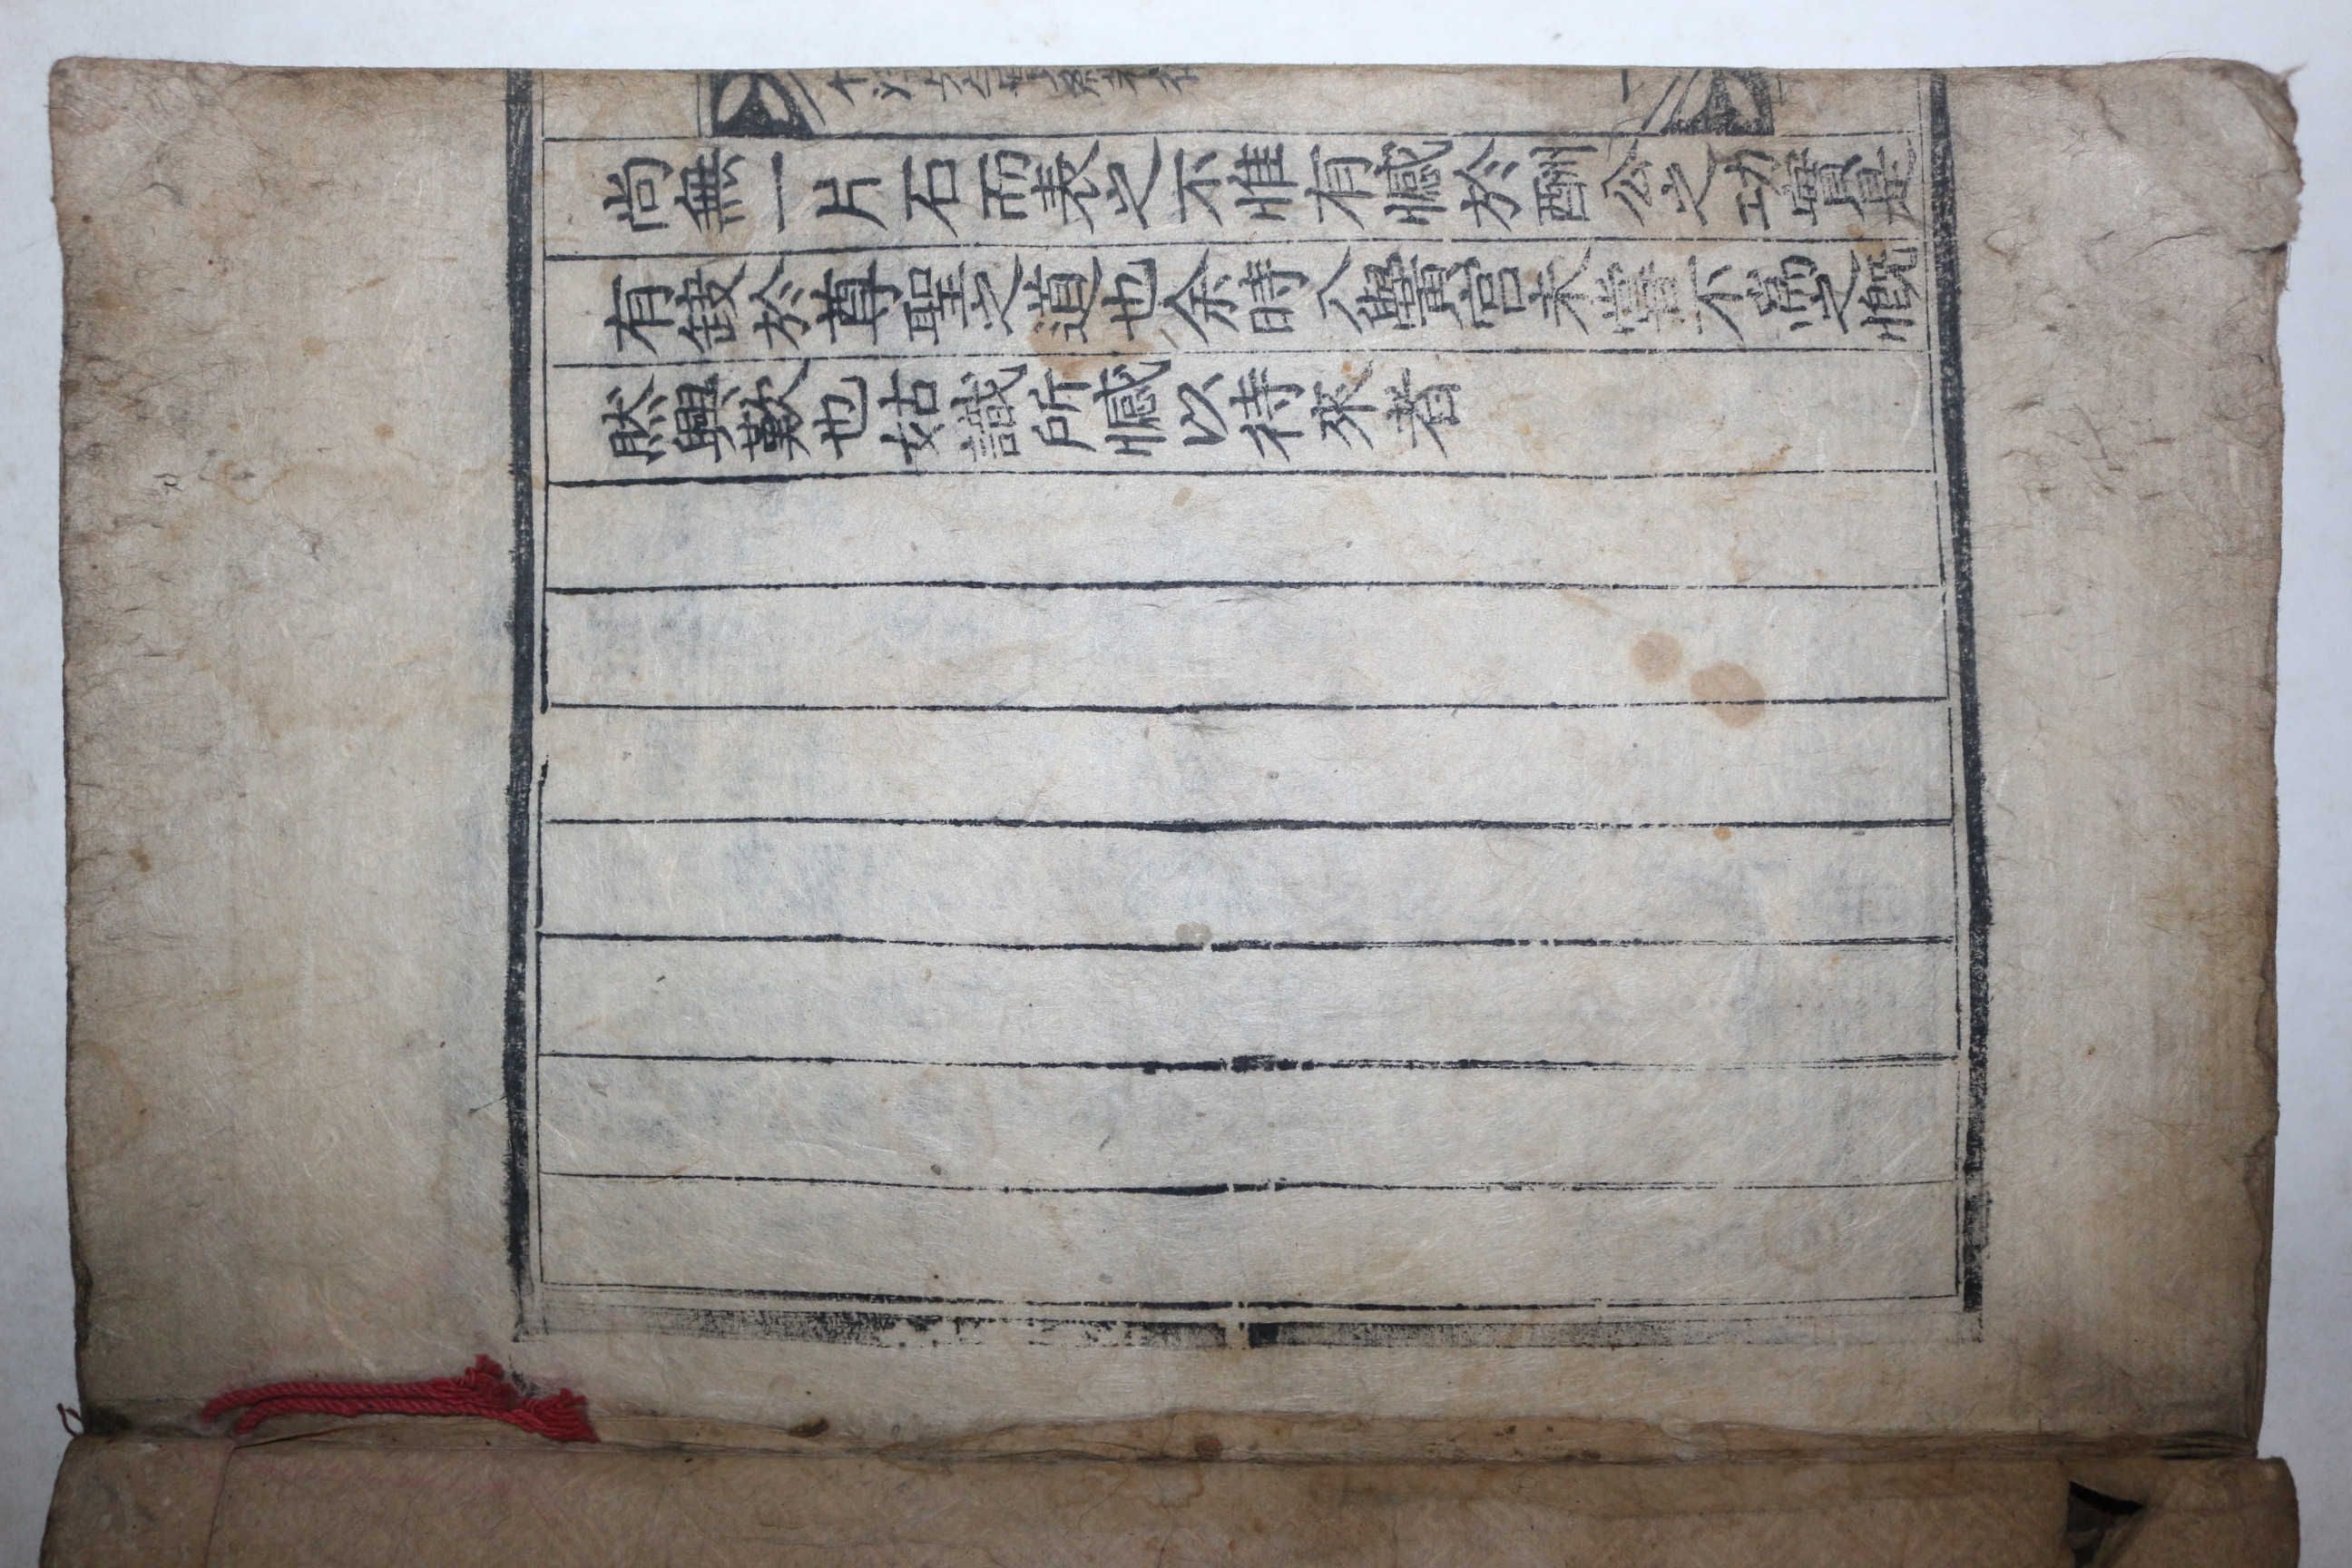 尚無一片石而表之不惟有憾於酬公之功實是
有於尊聖之道也余時入黌宮未嘗不爲之慨
然興歎也姑識所憾以待來者